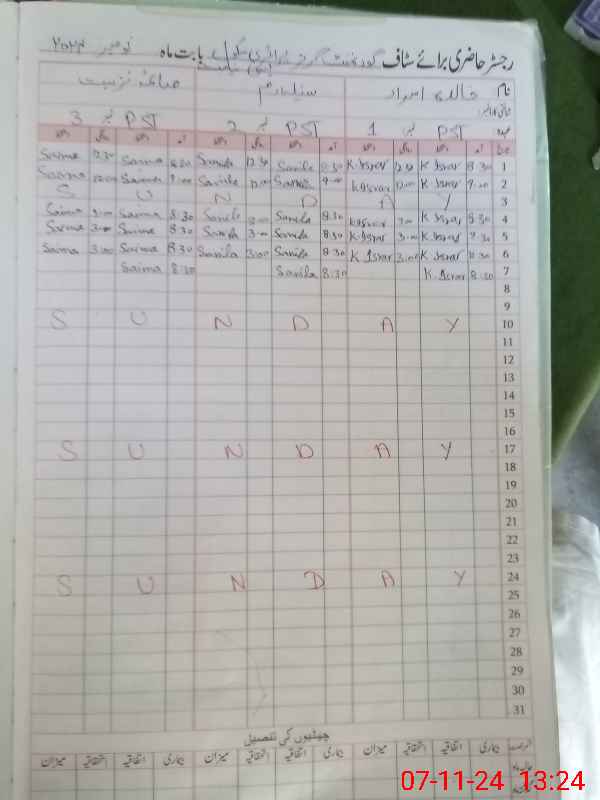 رجسٹر حاضری برائے سٹاف گورنمنٹ گرلز پرائمری سکول بابت ماہ نومبر ۲۰۲۴
نام خالدہ اسرار سنیلا صائمہ نزہت
عہدہ PST نمبر 1 PST نمبر 2 PST نمبر 3
1 8:30 K. Israr 12:30 K. Israr 8:30 Sanila 12:30 Sanila 8:30 Saima 12:30 Saima
2 9:00 K. Israr 12:00 K. Israr 9:00 Sanila 12:00 Sanila 9:00 Saima 12:00 Saima
3 S U N D A Y
4 8:30 K. Israr 3:00 K. Israr 8:30 Sanila 3:00 Sanila 8:30 Saima 3:00 Saima
5 8:30 K. Israr 3:00 K. Israr 8:30 Sanila 3:00 Sanila 8:30 Saima 3:00 Saima
6 8:30 K. Israr 3:00 K. Israr 8:30 Sanila 3:00 Sanila 8:30 Saima 3:00 Saima
7 8:30 K. Israr 8:30 Sanila 8:30 Saima
8
9
10 S U N D A Y
11
12
13
14
15
16
17 S U N D A Y
18
19
20
21
22
23
24 S U N D A Y
25
26
27
28
29
30
31
چھٹیوں کی تفصیل
بیماری اتفاقیہ استحقاقیہ میزان بیماری اتفاقیہ استحقاقیہ میزان بیماری اتفاقیہ استحقاقیہ میزان
07-11-24 13:24